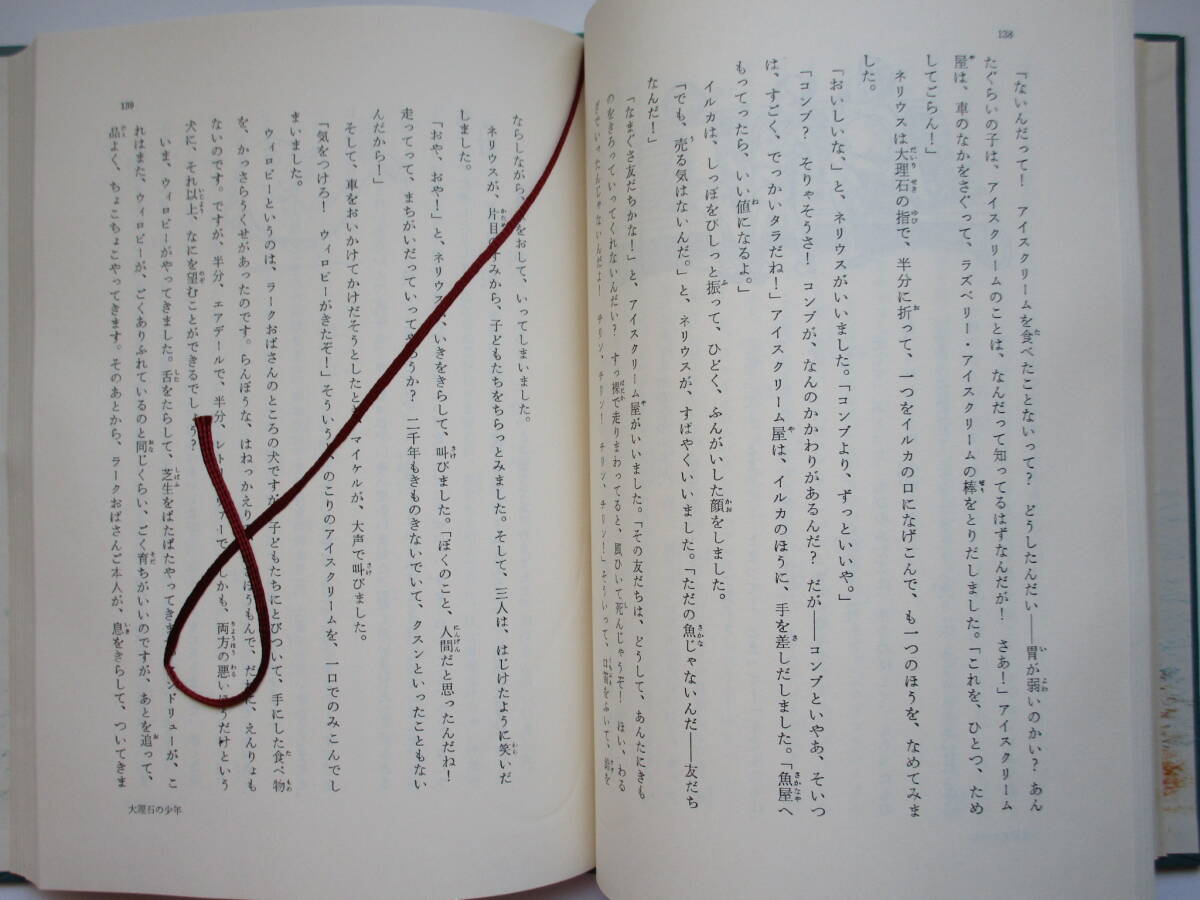 138
「ないんだって！　アイスクリームを食べたことないって？　どうしたんだい――胃が弱いのかい？　あん
たぐらいの子は、アイスクリームのことは、なんだって知ってるはずなんだが！　さあ！」アイスクリーム
屋は、車のなかをさぐって、ラズベリー・アイスクリームの棒をとりだしました。「これを、ひとつ、ため
してごらん！」
ネリウスは大理石の指で、半分に折って、一つをイルカの口になげこんで、も一つのほうを、なめてみま
した。
「おいしいな。」と、ネリウスがいいました。「コンブより、ずっといいや。」
「コンブ？　そりゃそうさ！　コンブが、なんのかかわりがあるんだ？　だが――コンブといやあ、そいつ
は、すごく、でっかいタラだね！」アイスクリーム屋は、イルカのほうに、手を差しだしました。「魚屋へ
もってったら、いい値になるよ。」
イルカは、しっぽをぴしっと振って、ひどく、ふんがいした顔をしました。
「でも、売る気はないんだ。」と、ネリウスが、すばやくいいました。「ただの魚じゃないんだ――友だち
なんだ！」
「なまぐさ友だちかな！」と、アイスクリーム屋がいいました。「その友だちは、どうして、あんたにきも
のをきろっていってくれないんだい？　すっ裸で走りまわってると、風ひいて死んじゃうぞ！　ほい、わる
ぎでいったんじゃないんだよ！　チリン、チリン！　チリン、チリン！」そういって、口笛をふいて、鈴を
139
ならしながら、をおして、いってしまいました。
ネリウスが、片目のすみから、子どもたちをちらっとみました。そして、三人は、はじけたように笑いだ
しました。
「おや、おや！」と、ネリウス、いきをきらして、叫びました。「ぼくのこと、人間だと思ったんだね！
走ってって、まちがいだっていってやろうか？　二千年もきものきないでいて、クスンといったこともない
んだから！」
そして、車をおいかけてかけだそうとしたと、マイケルが、大声で叫びました。
「気をつけろ！　ウィロビーがきたぞ！」そういうと、のこりのアイスクリームを、一口でのみこんでし
まいました。
ウィロビーというのは、ラークおばさんのところの犬ですが、子どもたちにとびついて、手にした食べ物
を、かっさらうくせがあったのです。らんぼうな、はねっかえり、さほうもんで、だれに、えんりょも
ないのです。ですが、半分、エアデールで、半分、レトリーヴァーで、しかも、両方の悪いほうだけという
犬に、それ以上、なにを望むことができるでしょう？
いま、ウィロビーがやってきました。舌をたらして、芝生をばたばたやってきます。ンドリューが、こ
れはまた、ウィロビーが、ごくありふれているのと同じくらい、ごく育ちがいいのですが、あとを追って、
品よく、ちょこちょこやってきます。そのあとから、ラークおばさんご本人が、息をきらして、ついてきま
大理石の少年